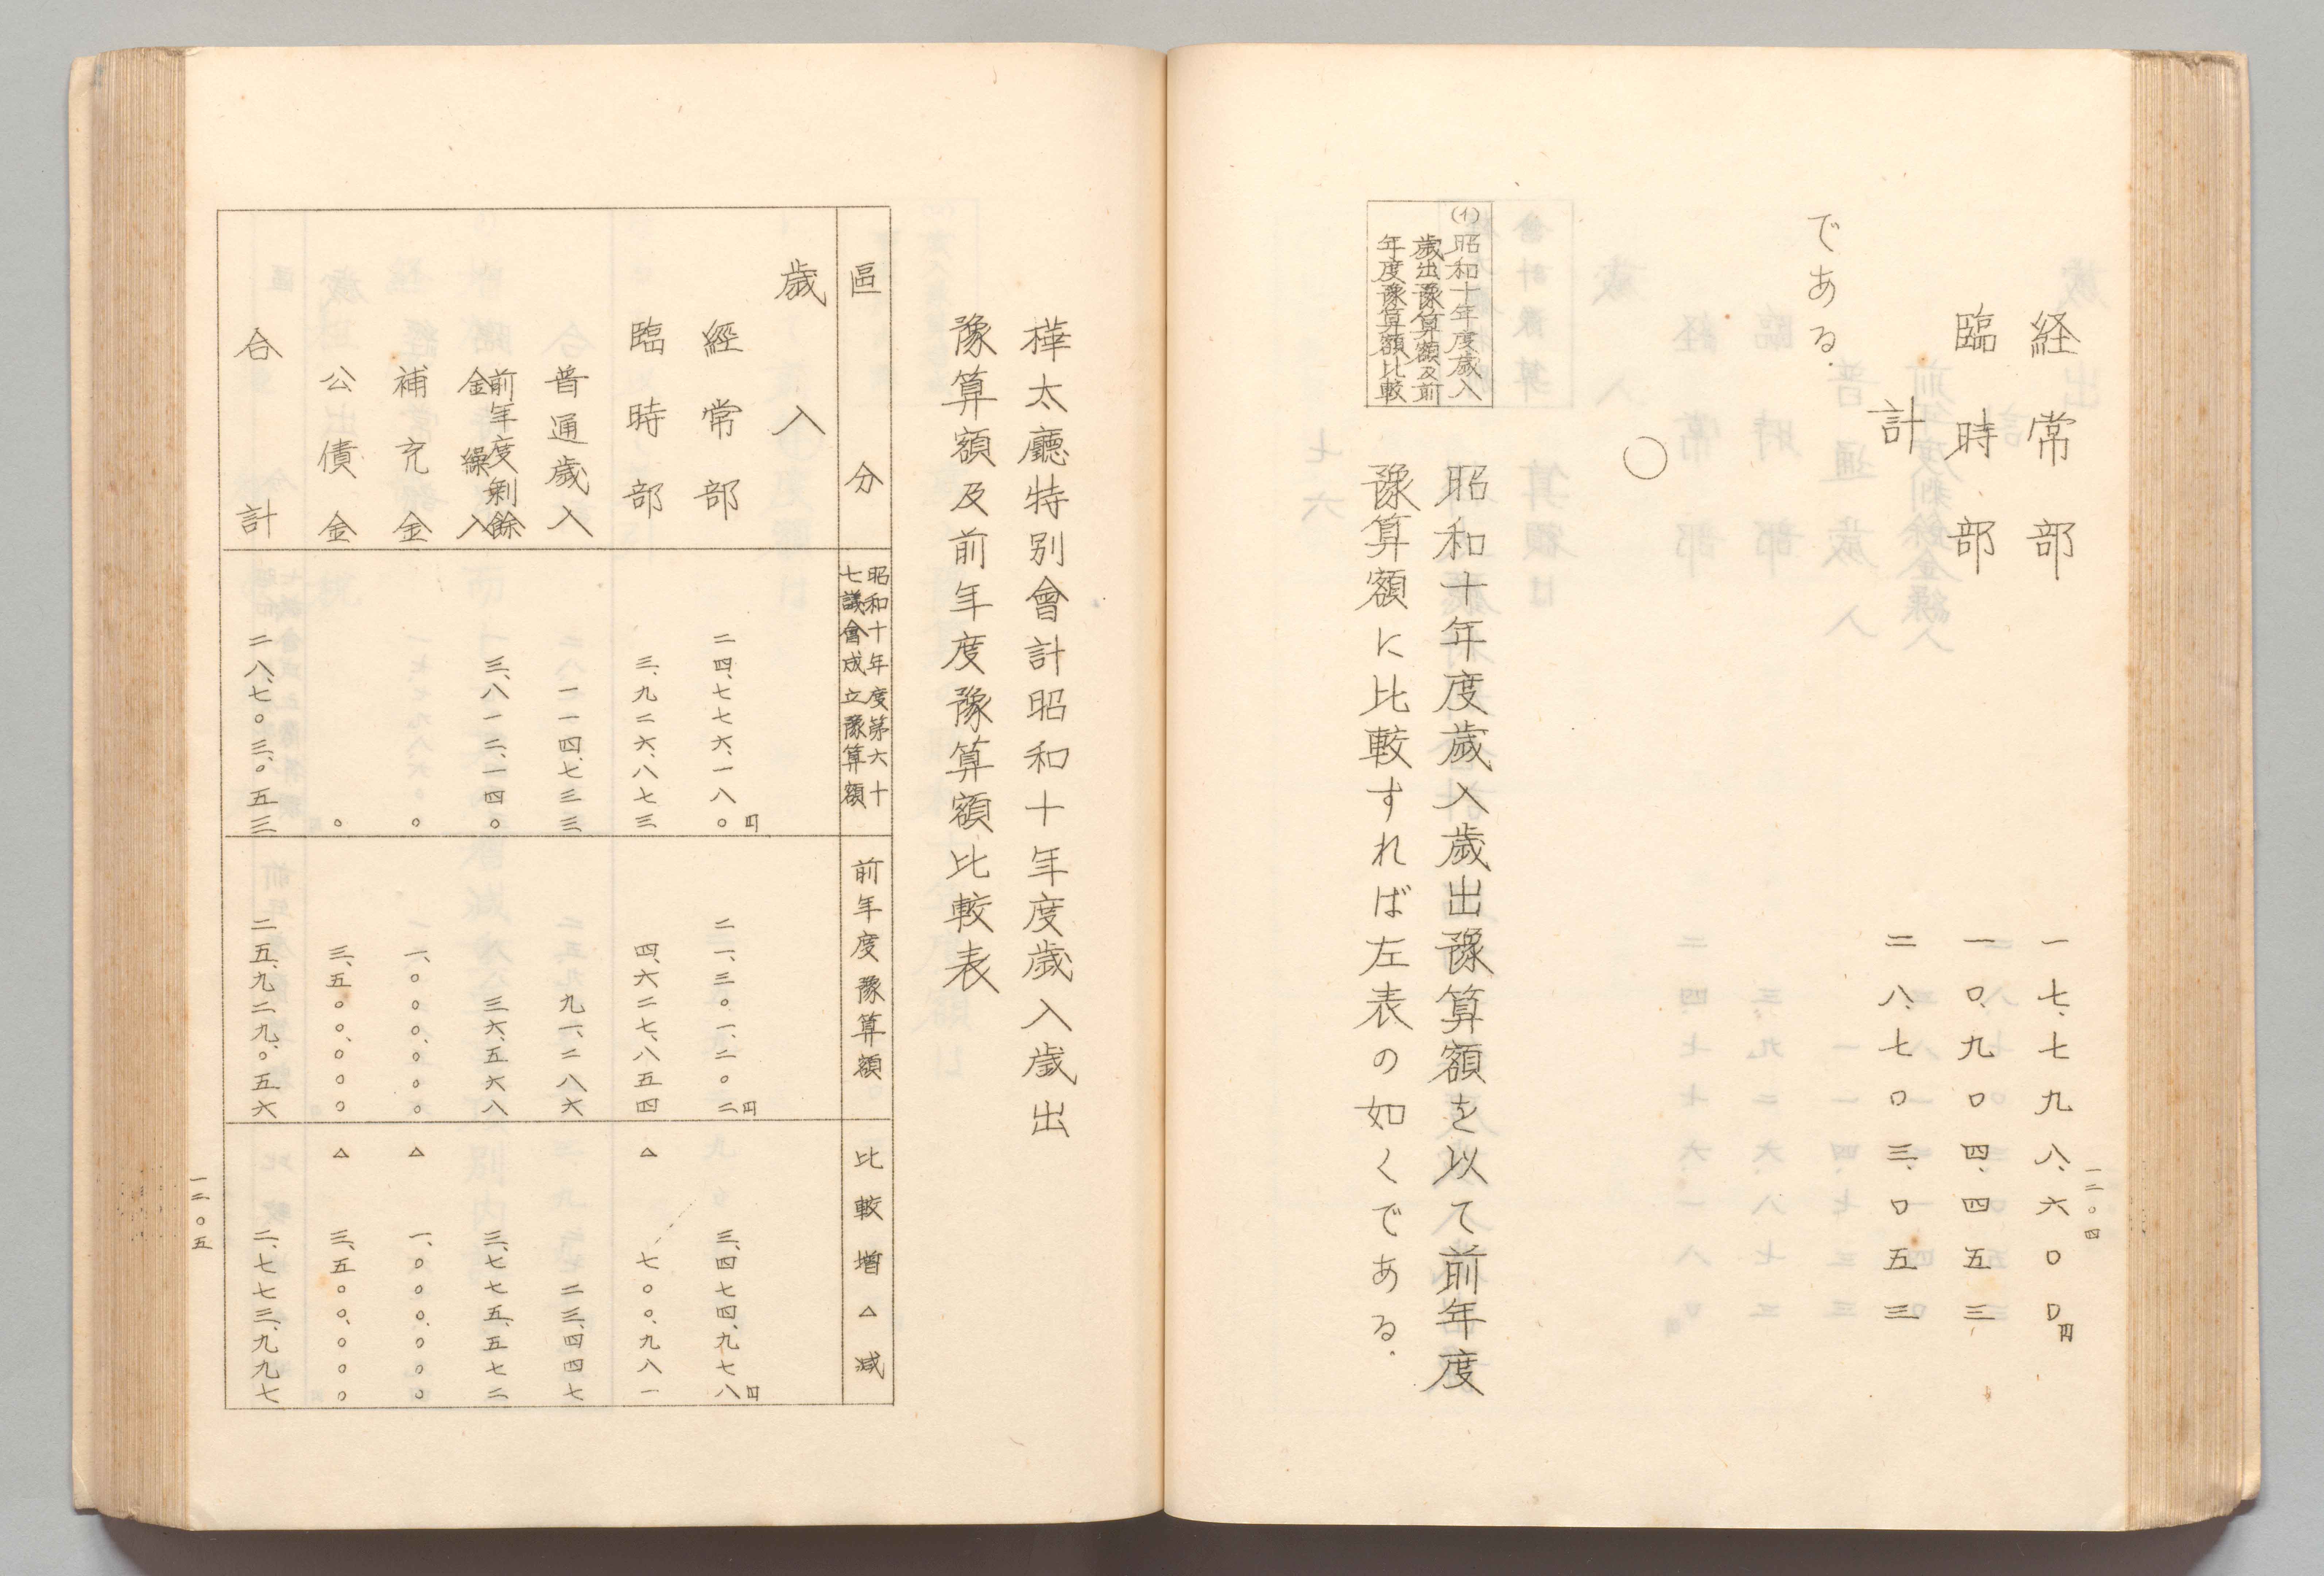 一二〇四
経常部 一七、七九八、六〇〇円
臨時部 一〇、九〇四、四五三
計 二八、七〇三、〇五三
である.
○
(イ)昭和十年度歳入
歳出豫算額及前
年度豫算額比較
昭和十年度歳入歳出豫算額を以て前年度
豫算額に比較すれば左表の如くである.
樺太廳特別會計昭和十年度歳入歳出
豫算額及前年度豫算額比較表
區分 昭和十年度第六十七議會成立豫算額 前年度豫算額 比較増△減
歳入
經常部 二四、七七六、一八〇円 二一、三〇一、二〇二円 三、四七四、九七八円
臨時部 三、九二六、八七三 四、六二七、八五四 △七〇〇、九八一
普通歳入 一一四、七三三 九一、二八六 二三、四四七
前年度剰餘金繰入 三、八一二、一四〇 三六、五六八 三、七七五、五七二
補充金 〇 一、〇〇〇、〇〇〇 △一、〇〇〇、〇〇〇
公債金 〇 三、五〇〇、〇〇〇 △三、五〇〇、〇〇〇
合計 二八、七〇三、〇五三 二五、九二九、〇五六 二、七七三、九九七
一二〇五